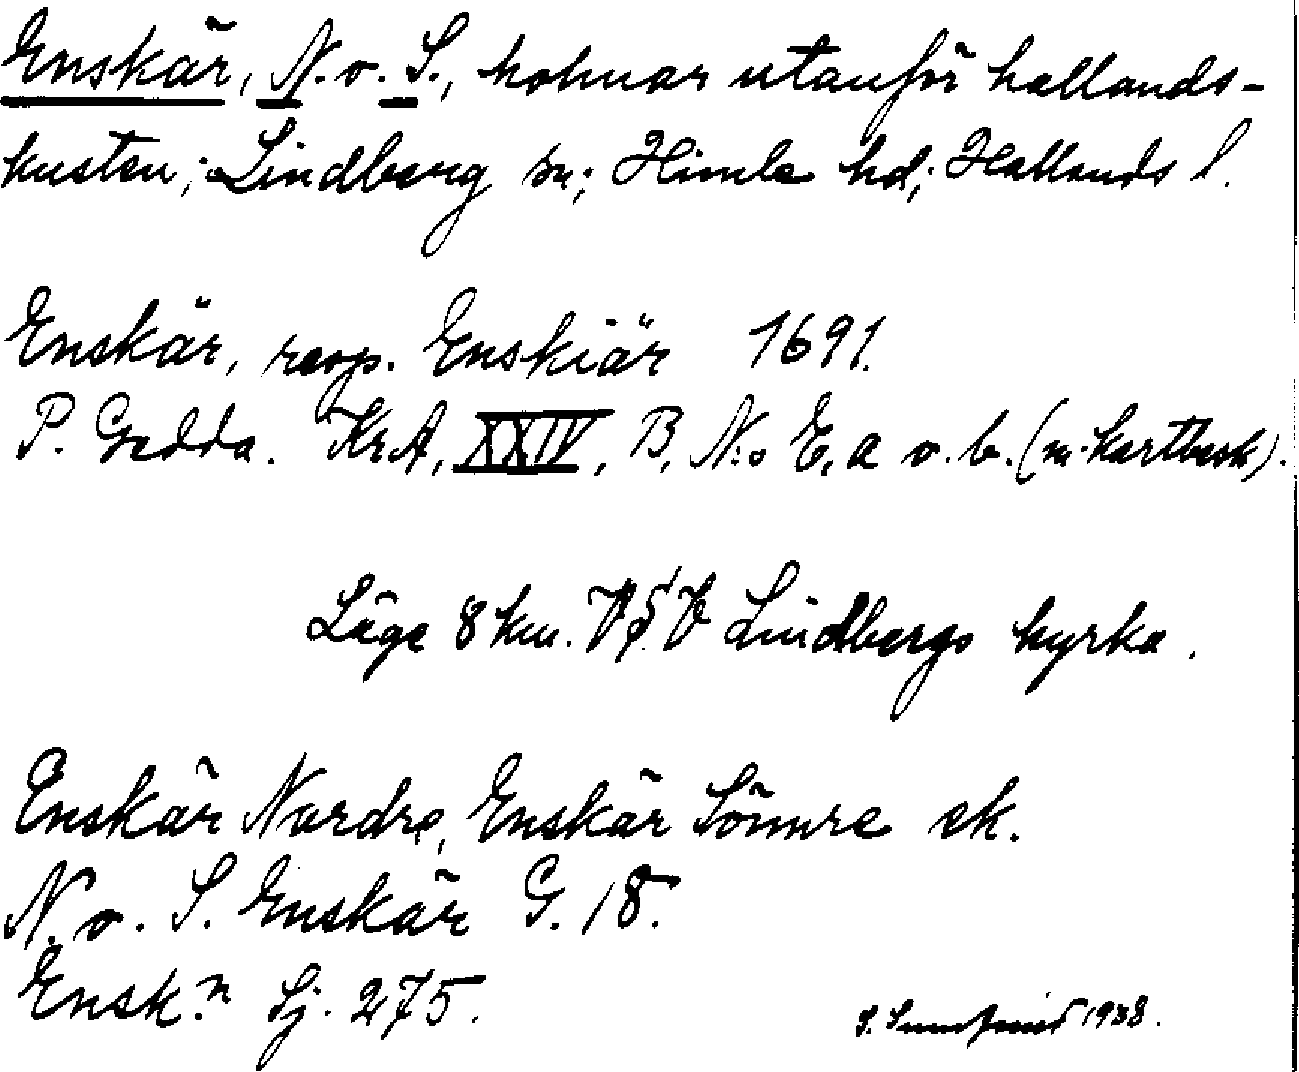 Enskär, N. o. S., holmar utanför hallands-
kusten; Lindberg sn; Himle hd; Hallands l.
Enskär, resp. Enskiär 1691.
P. Gedda. Kr.A, XXIV, B, N:o E, a o. b. (m. kartbesk).
Läge 8 km. V S V Lindbergs kyrka.
Enskär Nordre, Enskär Sönnre ek.
N. o. S. Enskär G. 18.
Ensk.n Sj. 275.
1938.